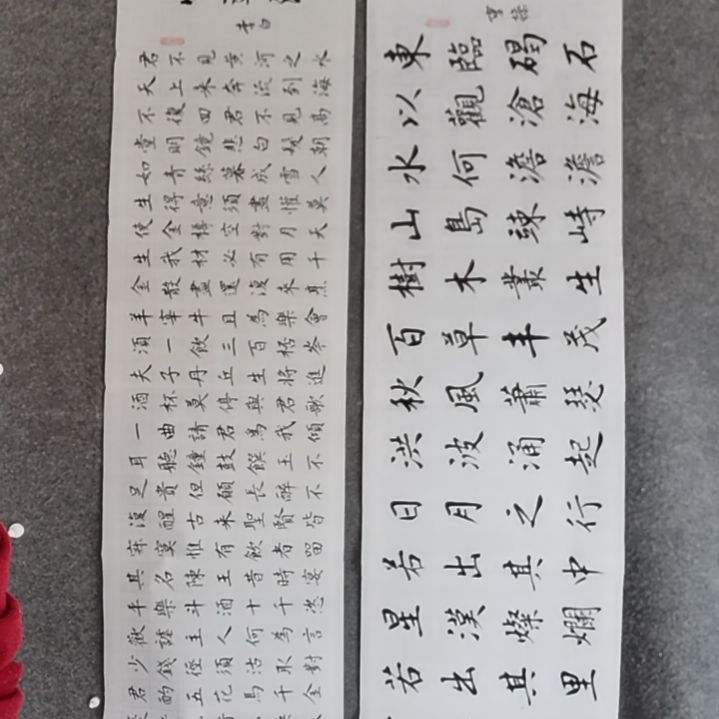 李白
君不見黃河之水
天上來奔流到海
不復回君不見高
堂明鏡悲白髮朝
如青絲暮成雪人
生得意須盡懽莫
使金樽空對月天
生我材必有用千
金散盡還復來烹
羊宰牛且為樂會
須一飲三百杯岑
夫子丹丘生將進
酒杯莫停與君歌
一曲請君為我傾
耳聽鐘鼓饌玉不
足貴但願長醉不
復醒古來聖賢皆
寂寞惟有飲者留
其名陳王昔時宴
平樂斗酒十千恣
歡謔主人何為言
少錢徑須沽取對
君酌五花馬千金
曹操
東臨碣石
以觀滄海
水何澹澹
山島竦峙
樹木叢生
百草丰茂
秋風蕭瑟
洪波涌起
日月之行
若出其中
星漢燦爛
若出其里